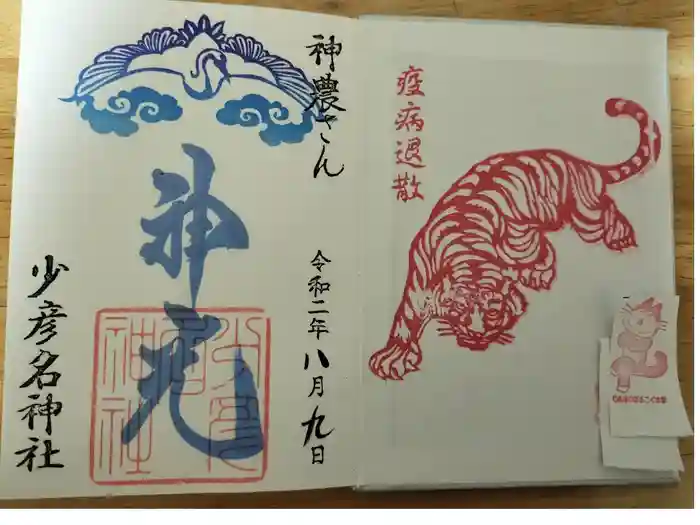 疫病退散
神農さん
令和二年八月九日
少彦名神社